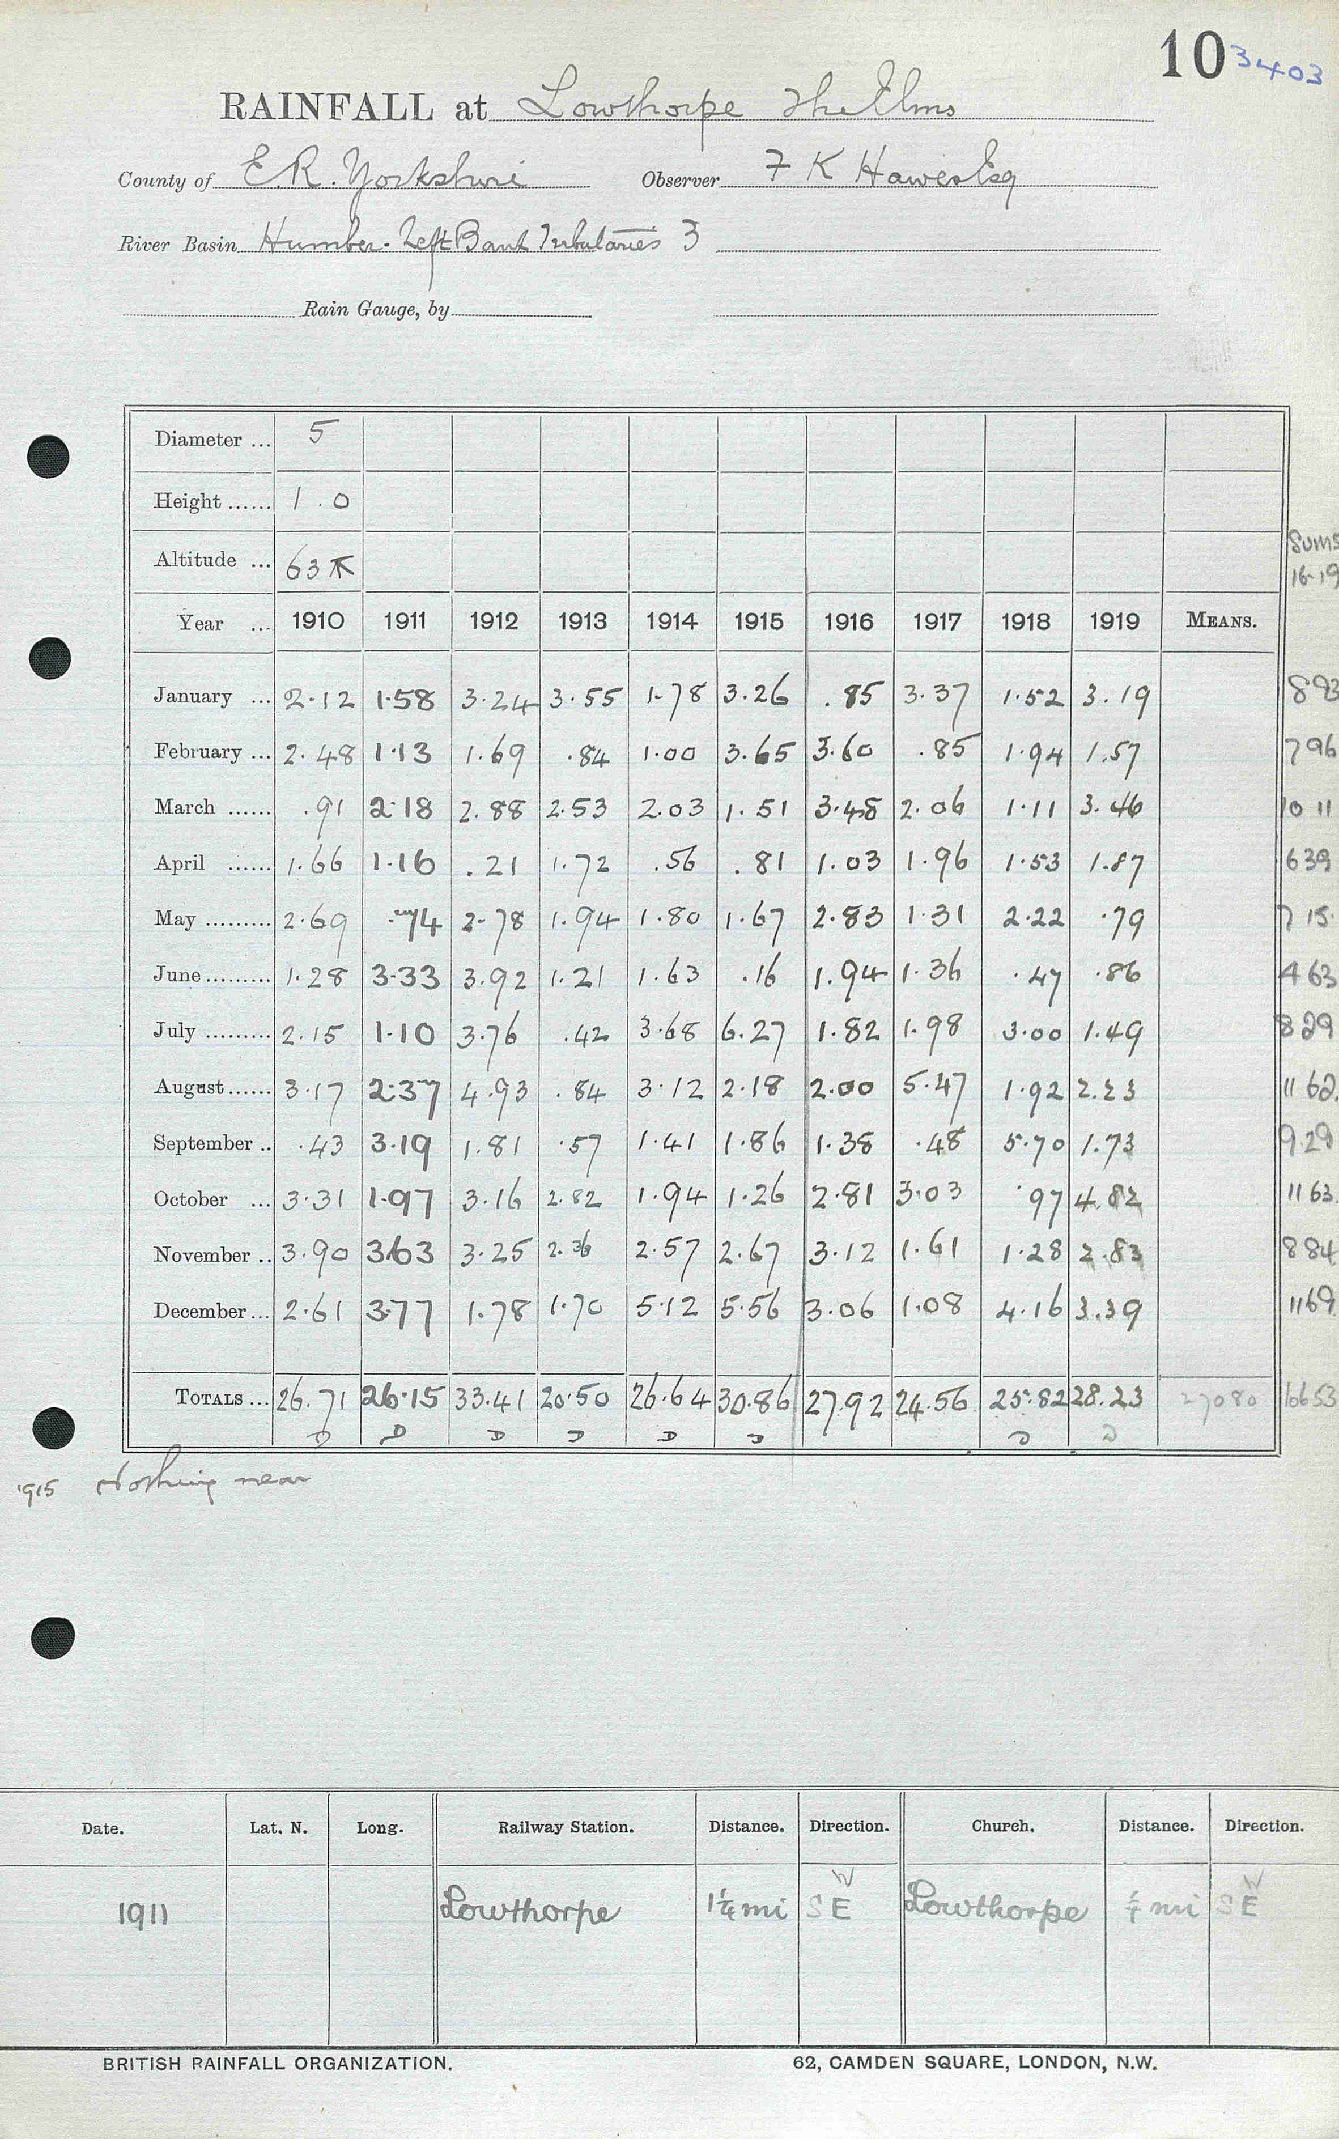 10 3403
RAINFALL at Lowthorpe The Elms
County of E.R. Yorkshire Observer F K Hawes Esq
River Basin Humber. Left Bank Tributaries 3
Rain Gauge, by
Diameter ... 5
Height ...... 1.0
Altitude ... 63 Sums 16-19
Year ... 1910 1911 1912 1913 1914 1915 1916 1917 1918 1919 MEANS.
January ... 2.12 1.58 3.24 3.55 1.78 3.26 .85 3.37 1.52 3.19 893
February ... 2.48 1.13 1.69 .84 1.00 3.65 3.60 .85 1.94 1.57 796
March ...... .91 2.18 2.88 2.53 2.03 1.51 3.48 2.06 1.11 3.46 10 11
April ...... 1.66 1.16 .21 1.72 .56 .81 1.03 1.96 1.53 1.87 639
May ......... 2.69 .74 2.78 1.94 1.80 1.67 2.83 1.31 2.22 .79 7 15
June ......... 1.28 3.33 3.92 1.21 1.63 .16 1.94 1.36 .47 .86 463
July ......... 2.15 1.10 3.76 .42 3.68 6.27 1.82 1.98 3.00 1.49 829
August ...... 3.17 2.37 4.93 .84 3.12 2.18 2.00 5.47 1.92 2.23 11 62
September .. .43 3.19 1.81 .57 1.41 1.86 1.38 .48 5.70 1.73 9.29
October ... 3.31 1.97 3.16 2.82 1.94 1.26 2.81 3.03 .97 4.82 11 63
November .. 3.90 3.63 3.25 2.36 2.57 2.67 3.12 1.61 1.28 2.83 884
December ... 2.61 3.77 1.78 1.70 5.12 5.56 3.06 1.08 4.16 3.39 1169
TOTALS ... 26.71 26.15 33.41 20.50 26.64 30.86 27.92 24.56 25.82 28.23 27080 10653
D D D D D D D D
1915 Nothing near
Date. Lat. N. Long. Railway Station. Distance. Direction. Church. Distance. Direction.
W W
1911 Lowthorpe 1¼ mi S E Lowthorpe mi S E
BRITISH RAINFALL ORGANIZATION. 62, CAMDEN SQUARE, LONDON, N.W.